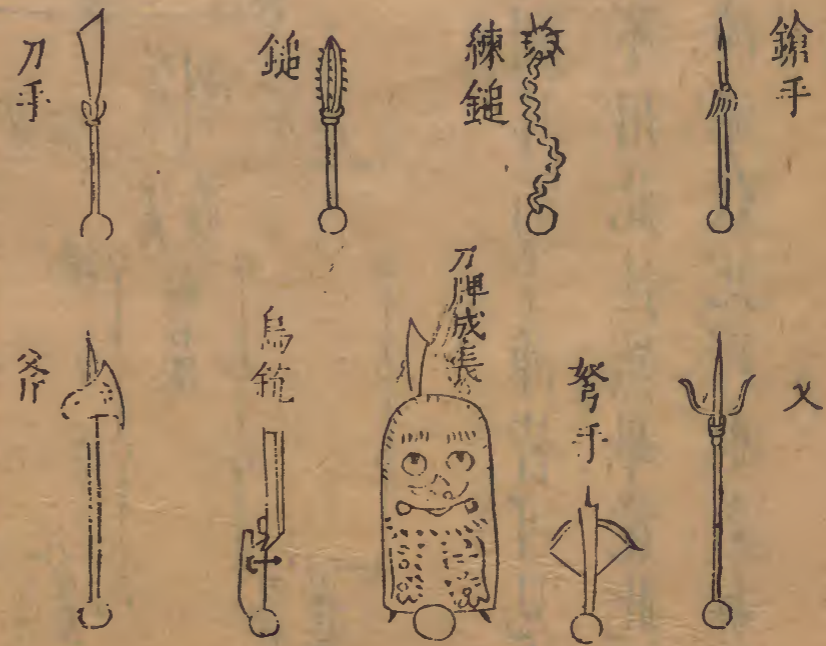 鎗手
練鎚
鎚
刀手
乂
弩手
刀牌成張
鳥銃
斧